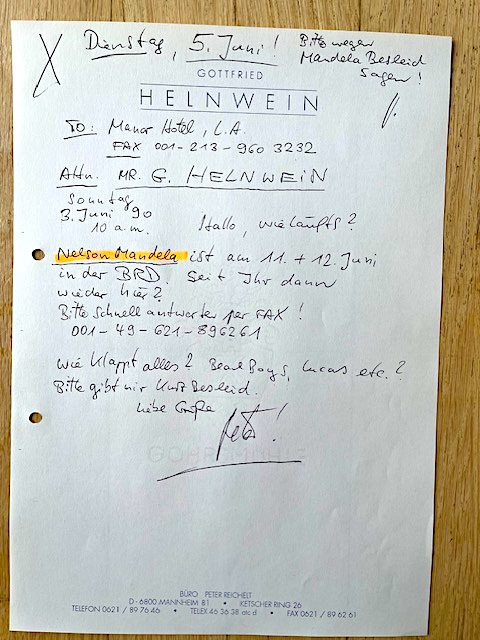 X Dienstag, 5. Juni! Bitte wegen
Mandela Bescheid
sagen!
GOTTFRIED
HELNWEIN
TO: Manor Hotel, L.A.
FAX 001-213-960 3232
Attn. MR. G. HELNWEIN
Sonntag
3. Juni 90
10 a.m. Hallo, wie läufts?
Nelson Mandela ist am 11. + 12. Juni
in der BRD. Seit Ihr dann
wieder hier?
Bitte schnell antworten per FAX!
001-49-621-896261
Wie klappt alles? Beach Boys, Lucas etc.?
Bitte gibt mir kurz Bescheid.
Liebe Grüße
Peter!
BÜRO PETER REICHELT
D - 6800 MANNHEIM 81 • KETSCHER RING 26
TELEFON 0621 / 89 76 46 • TELEX 46 36 38 atc d • FAX 0621 / 89 62 61